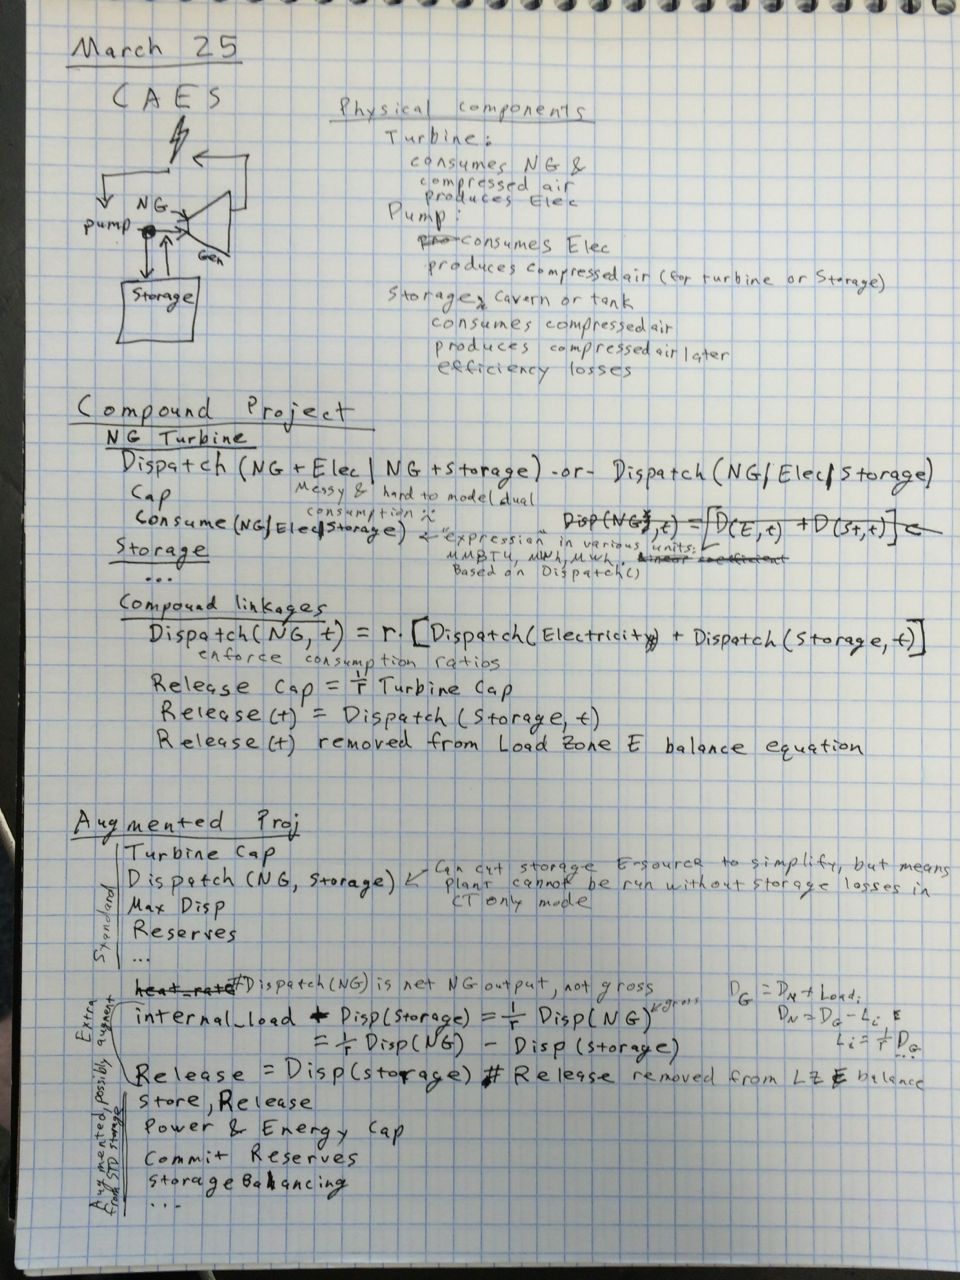 March 25
CAES
NG
pump
Gen
Storage
Physical components
Turbine:
consumes NG &
compressed air
produces Elec
Pump:
pro consumes Elec
produces compressed air (for turbine or storage)
Storage: cavern or tank
consumes compressed air
produces compressed air later
efficiency losses
Compound Project
NG Turbine
Dispatch (NG + Elec | NG + Storage) -or- Dispatch (NG/Elec/Storage)
Messy & hard to model dual
consumption :(
Cap
Consume (NG/Elec/Storage) ← "expression" in various units:
MMBTU, MWh, MWh, linear coefficient
Based on Dispatch()
Disp(NG, t) = [D(E,t) + D(St,t)] ←
Storage
...
Compound linkages
Dispatch(NG, t) = r · [Dispatch(Electricity) + Dispatch(Storage, t)]
enforce consumption ratios
Release Cap = 1/r Turbine Cap
Release (t) = Dispatch (Storage, t)
Release (t) removed from Load Zone E balance equation
Augmented Proj
Standard
Turbine Cap
Dispatch (NG, Storage) ← Can cut storage E-source to simplify, but means
plant cannot be run without storage losses in
CT only mode
Max Disp
Reserves
...
Extra augment
heat_rate #Dispatch(NG) is net NG output, not gross
internal_load + Disp(Storage) = 1/r Disp(NG) ← gross
= 1/r Disp(NG) - Disp(Storage)
D_G = D_N + Load_i
D_N = D_G - L_i
L_i = 1/r D_G
...
Release = Disp(storage) # Release removed from LZ E balance
Augmented, possibly from STD storage
Store, Release
Power & Energy Cap
Commit Reserves
Storage Balancing
...